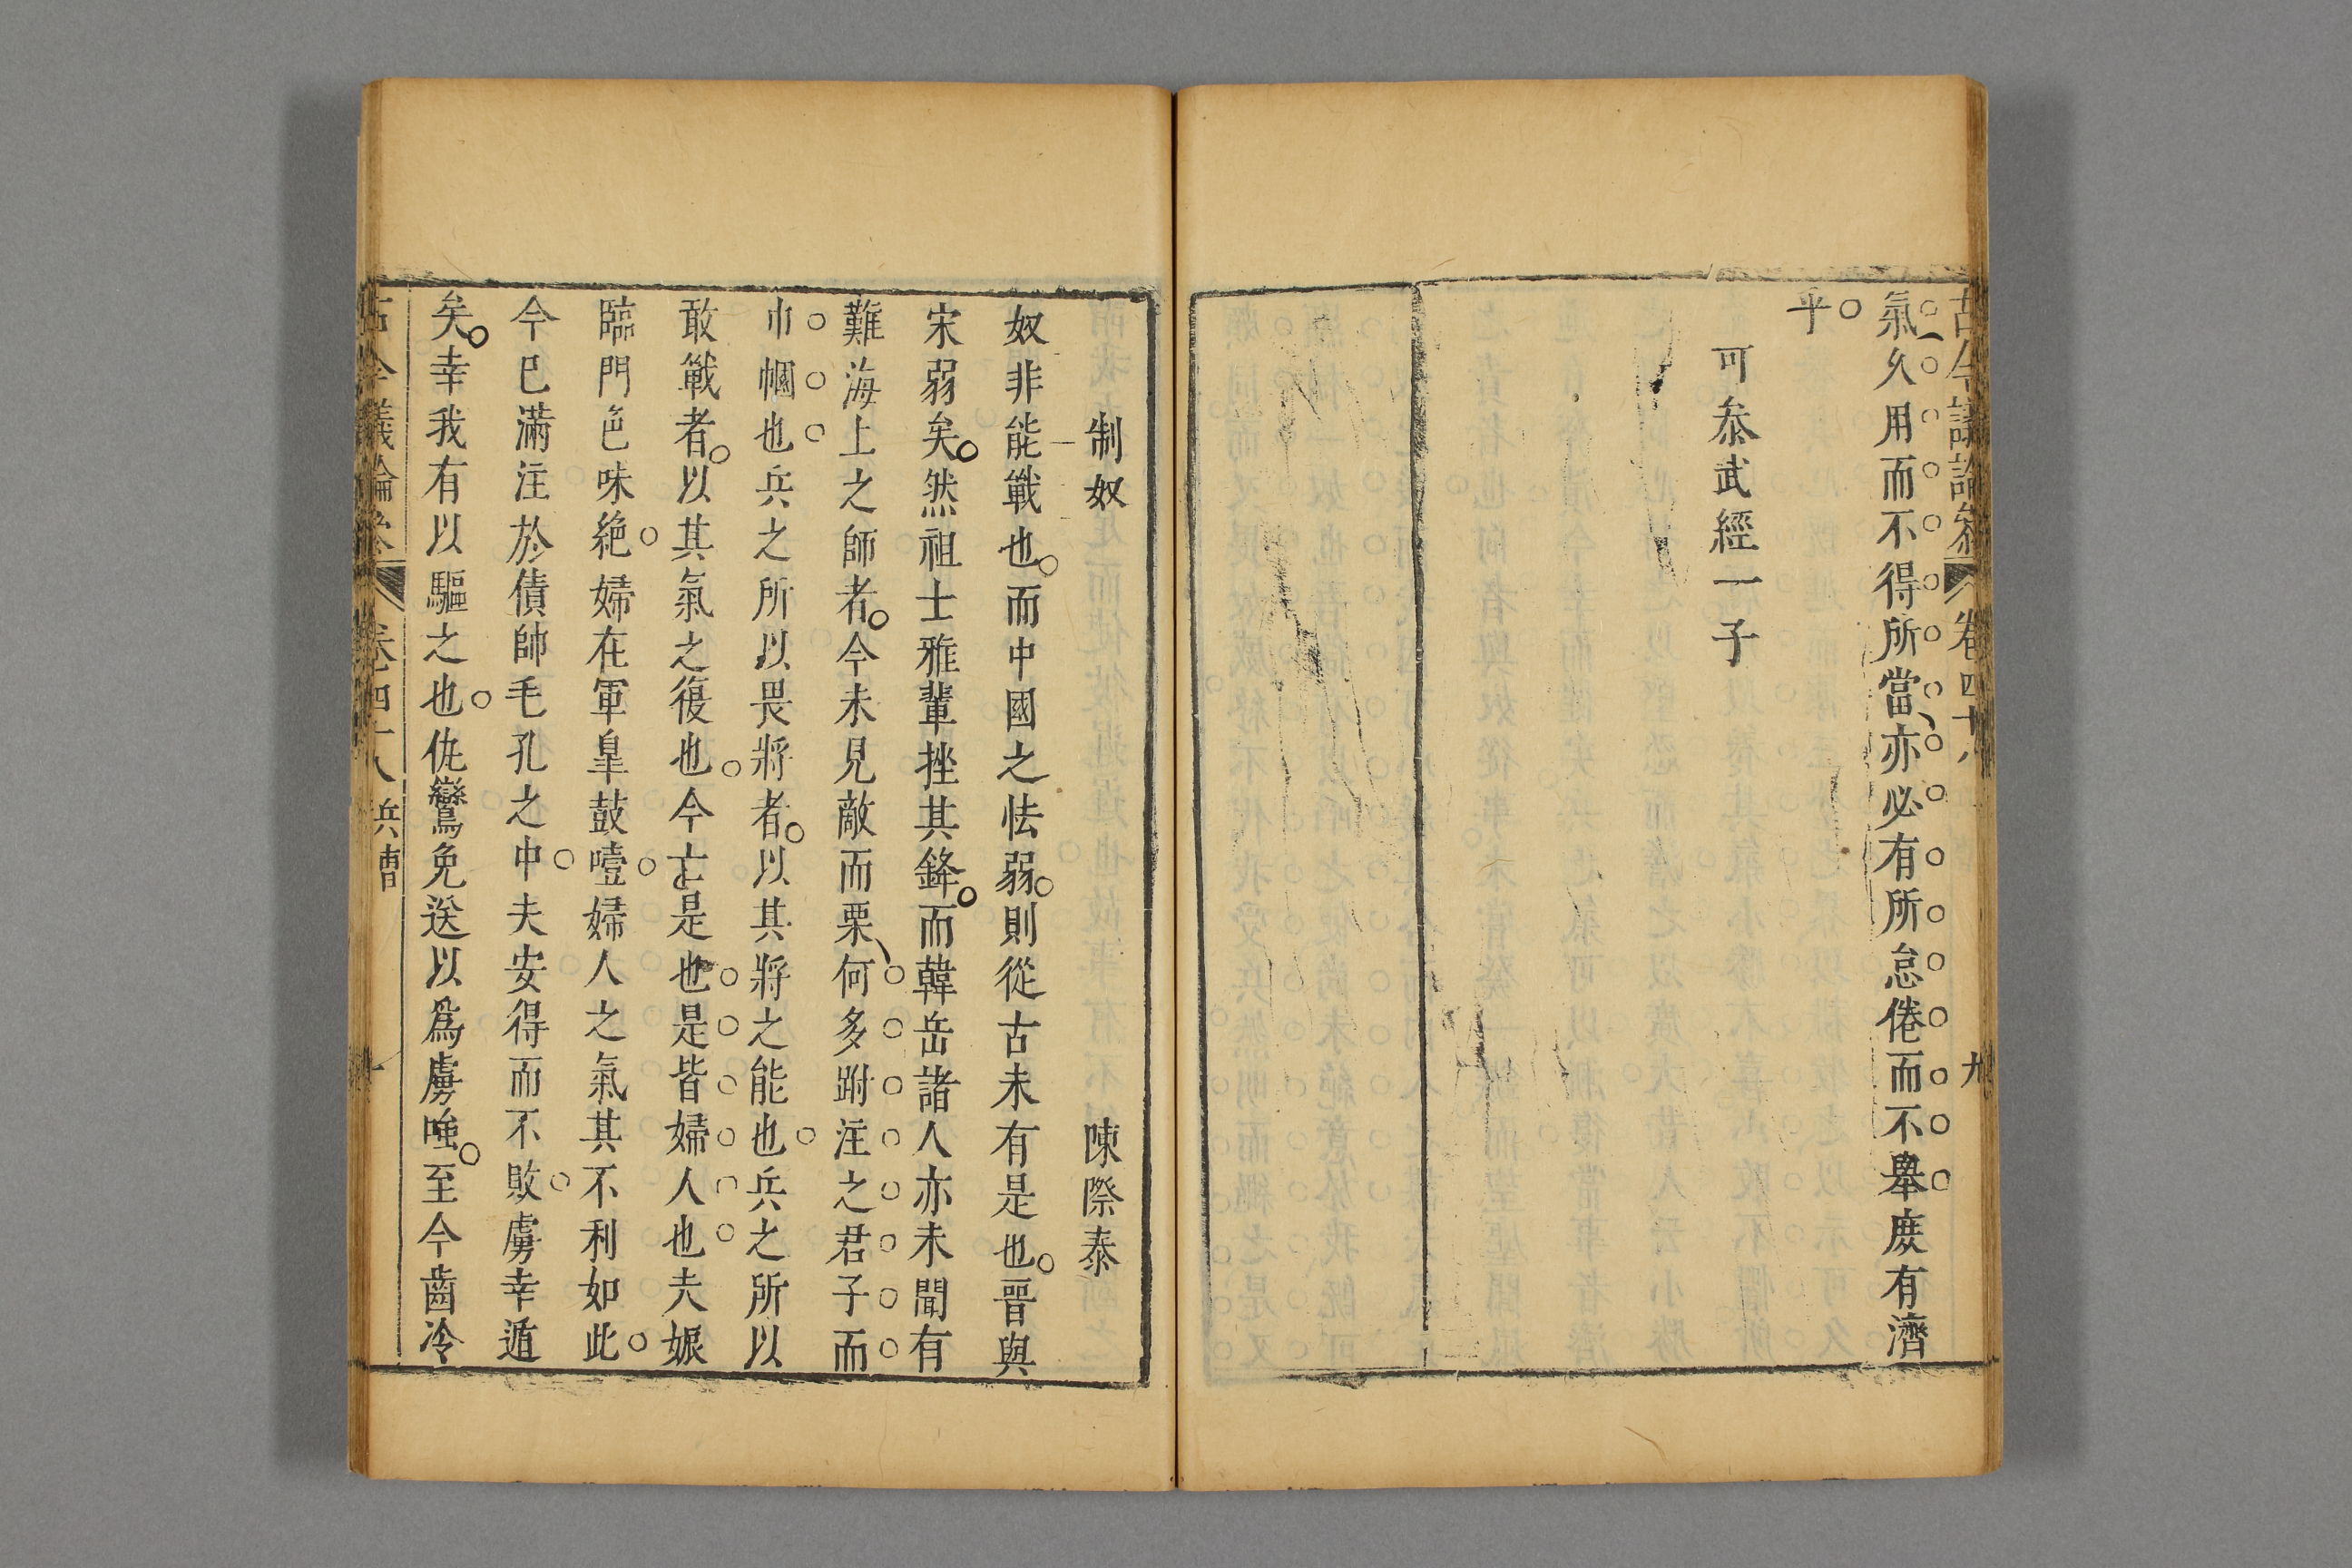 古今議論叅 卷四十八 九
氣久用而不得所當亦必有所怠倦而不舉庶有濟
乎
可叅武經一子
制奴 陳際泰
奴非能戰也而中國之怯弱則從古未有是也晉與
宋弱矣然祖士雅輩挫其鋒而韓岳諸人亦未聞有
難海上之師者今未見敵而栗何多跗注之君子而
巾幗也兵之所以畏將者以其將之能也兵之所以
敢戰者以其氣之復也今亡是也是皆婦人也夫娠
臨門色味絕婦在軍臯鼓噎婦人之氣其不利如此
今已滿注於債帥毛孔之中夫安得而不敗虜幸遁
矣幸我有以驅之也侁鸞免送以爲虜嗤至今齒冷
古今議論叅 卷四十八 兵曹 一